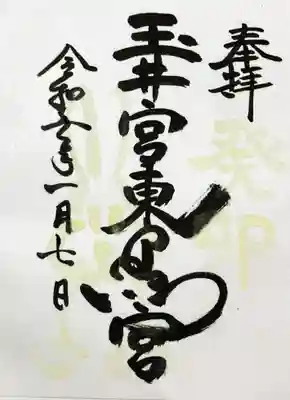 奉拝
癸卯
玉井宮東照宮
令和五年一月七日